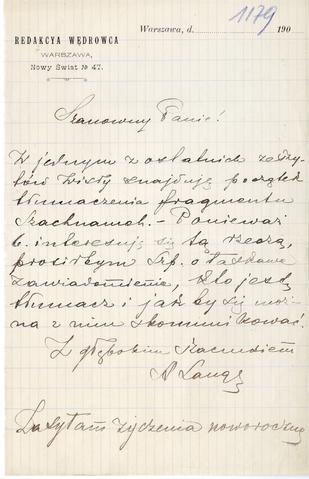 1179
Warszawa, d. 190
REDAKCYA WĘDROWCA
WARSZAWA,
Nowy Świat № 47.
Szanowny Panie!
W jednym z ostatnich zeszy-
tów Wisły znajduję początek
tłumaczenia fragmentu
Szachnameh. – Ponieważ
b. interesuję się tą rzeczą,
prosiłbym Szp. o łaskawe
zawiadomienie, kto jest
tłumacz i jak by się moż-
na z nim skommunikować.
Z głębokim szacunkiem
A Lange
Zasyłam życzenia noworoczne